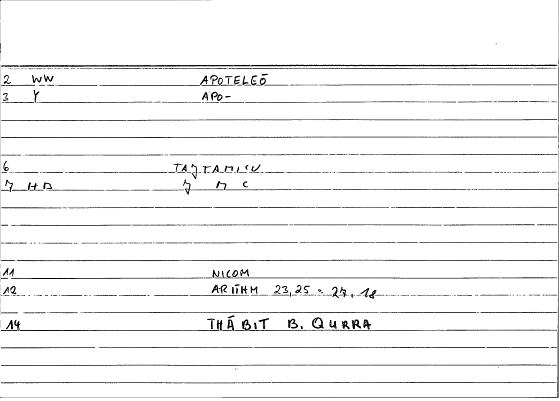 2 WW APOTELEŌ
3 Y APO-
6 TATTAMICU
7 HD M C
11 NICOM
12 ARITHM 23,25 - 27,18
14 THĀBIT B. QURRA